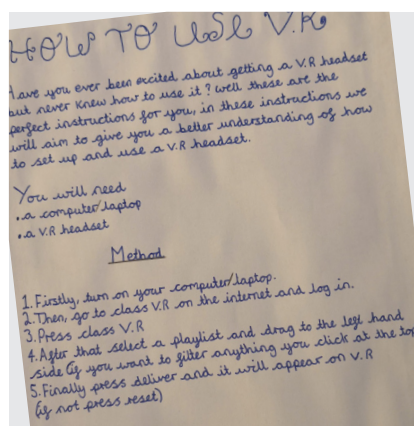 HOW TO USE V.R
Have you ever been excited about getting a V.R headset
but never knew how to use it? Well these are the
perfect instructions for you, in these instructions we
will aim to give you a better understanding of how
to set up and use a V.R headset.
You will need
• a computer/laptop
• a V.R headset
Method
1. Firstly, turn on your computer/laptop.
2. Then, go to class V.R on the internet and log in.
3. Press class V.R
4. After that select a playlist and drag to the left hand
side (if you want to filter anything you click at the top
5. Finally press deliver and it will appear on V.R
(if not press reset)